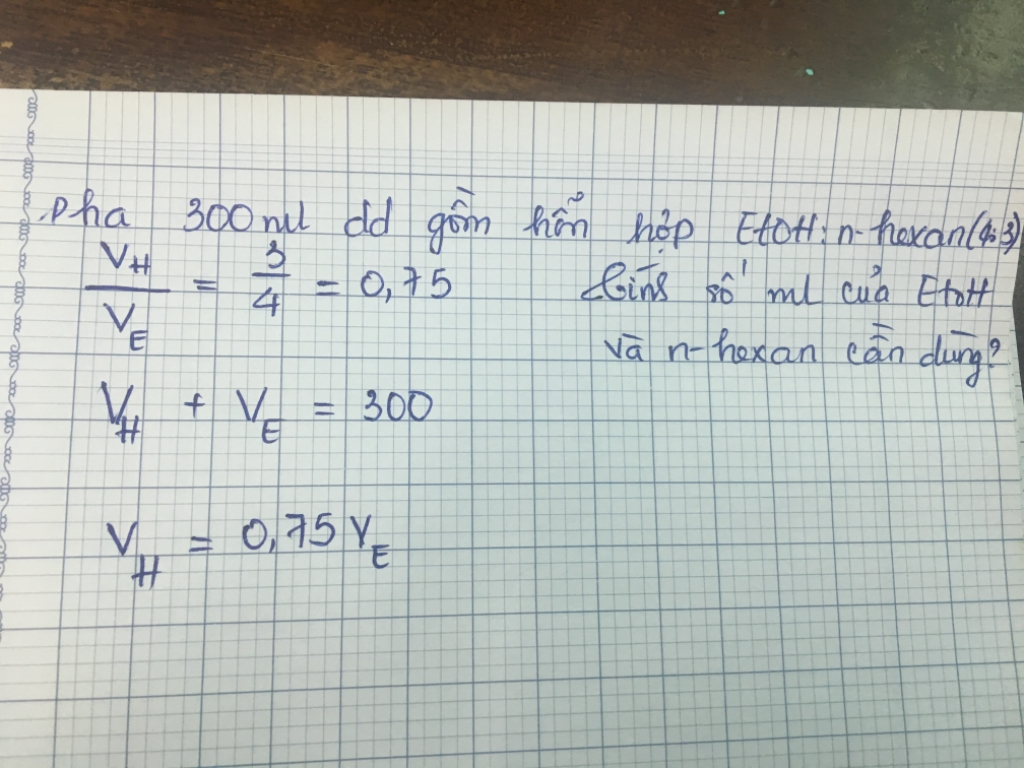 Pha 300ml dd gồm hỗn hợp EtOH: n-hexan (4:3)
V_H / V_E = 3/4 = 0,75
Tính số ml của EtOH
và n-hexan cần dùng?
V_H + V_E = 300
V_H = 0,75 V_E